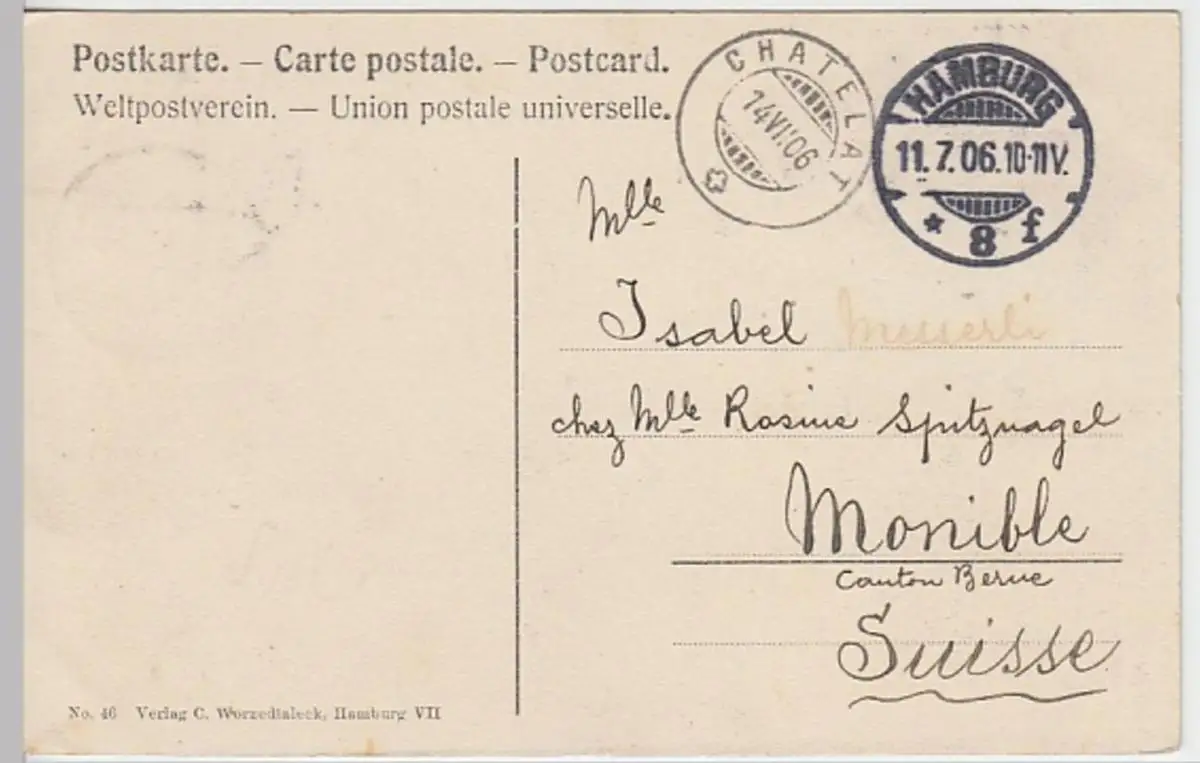 Postkarte. – Carte postale. – Postcard.
Weltpostverein. — Union postale universelle.
CHATELAT
14 VI 06
HAMBURG
11.7.06.10-11V.
* 8 f
Mlle
Isabel Messerli
chez Mlle Rosine Spitznagel
Monible
Canton Berne
Suisse
No. 46 Verlag C. Worzedialeck, Hamburg VII